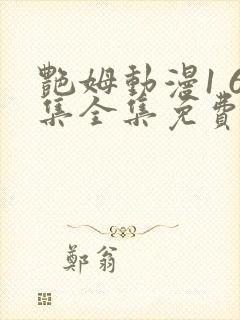 艷姆動漫1 6
集全集免費
鄭翁